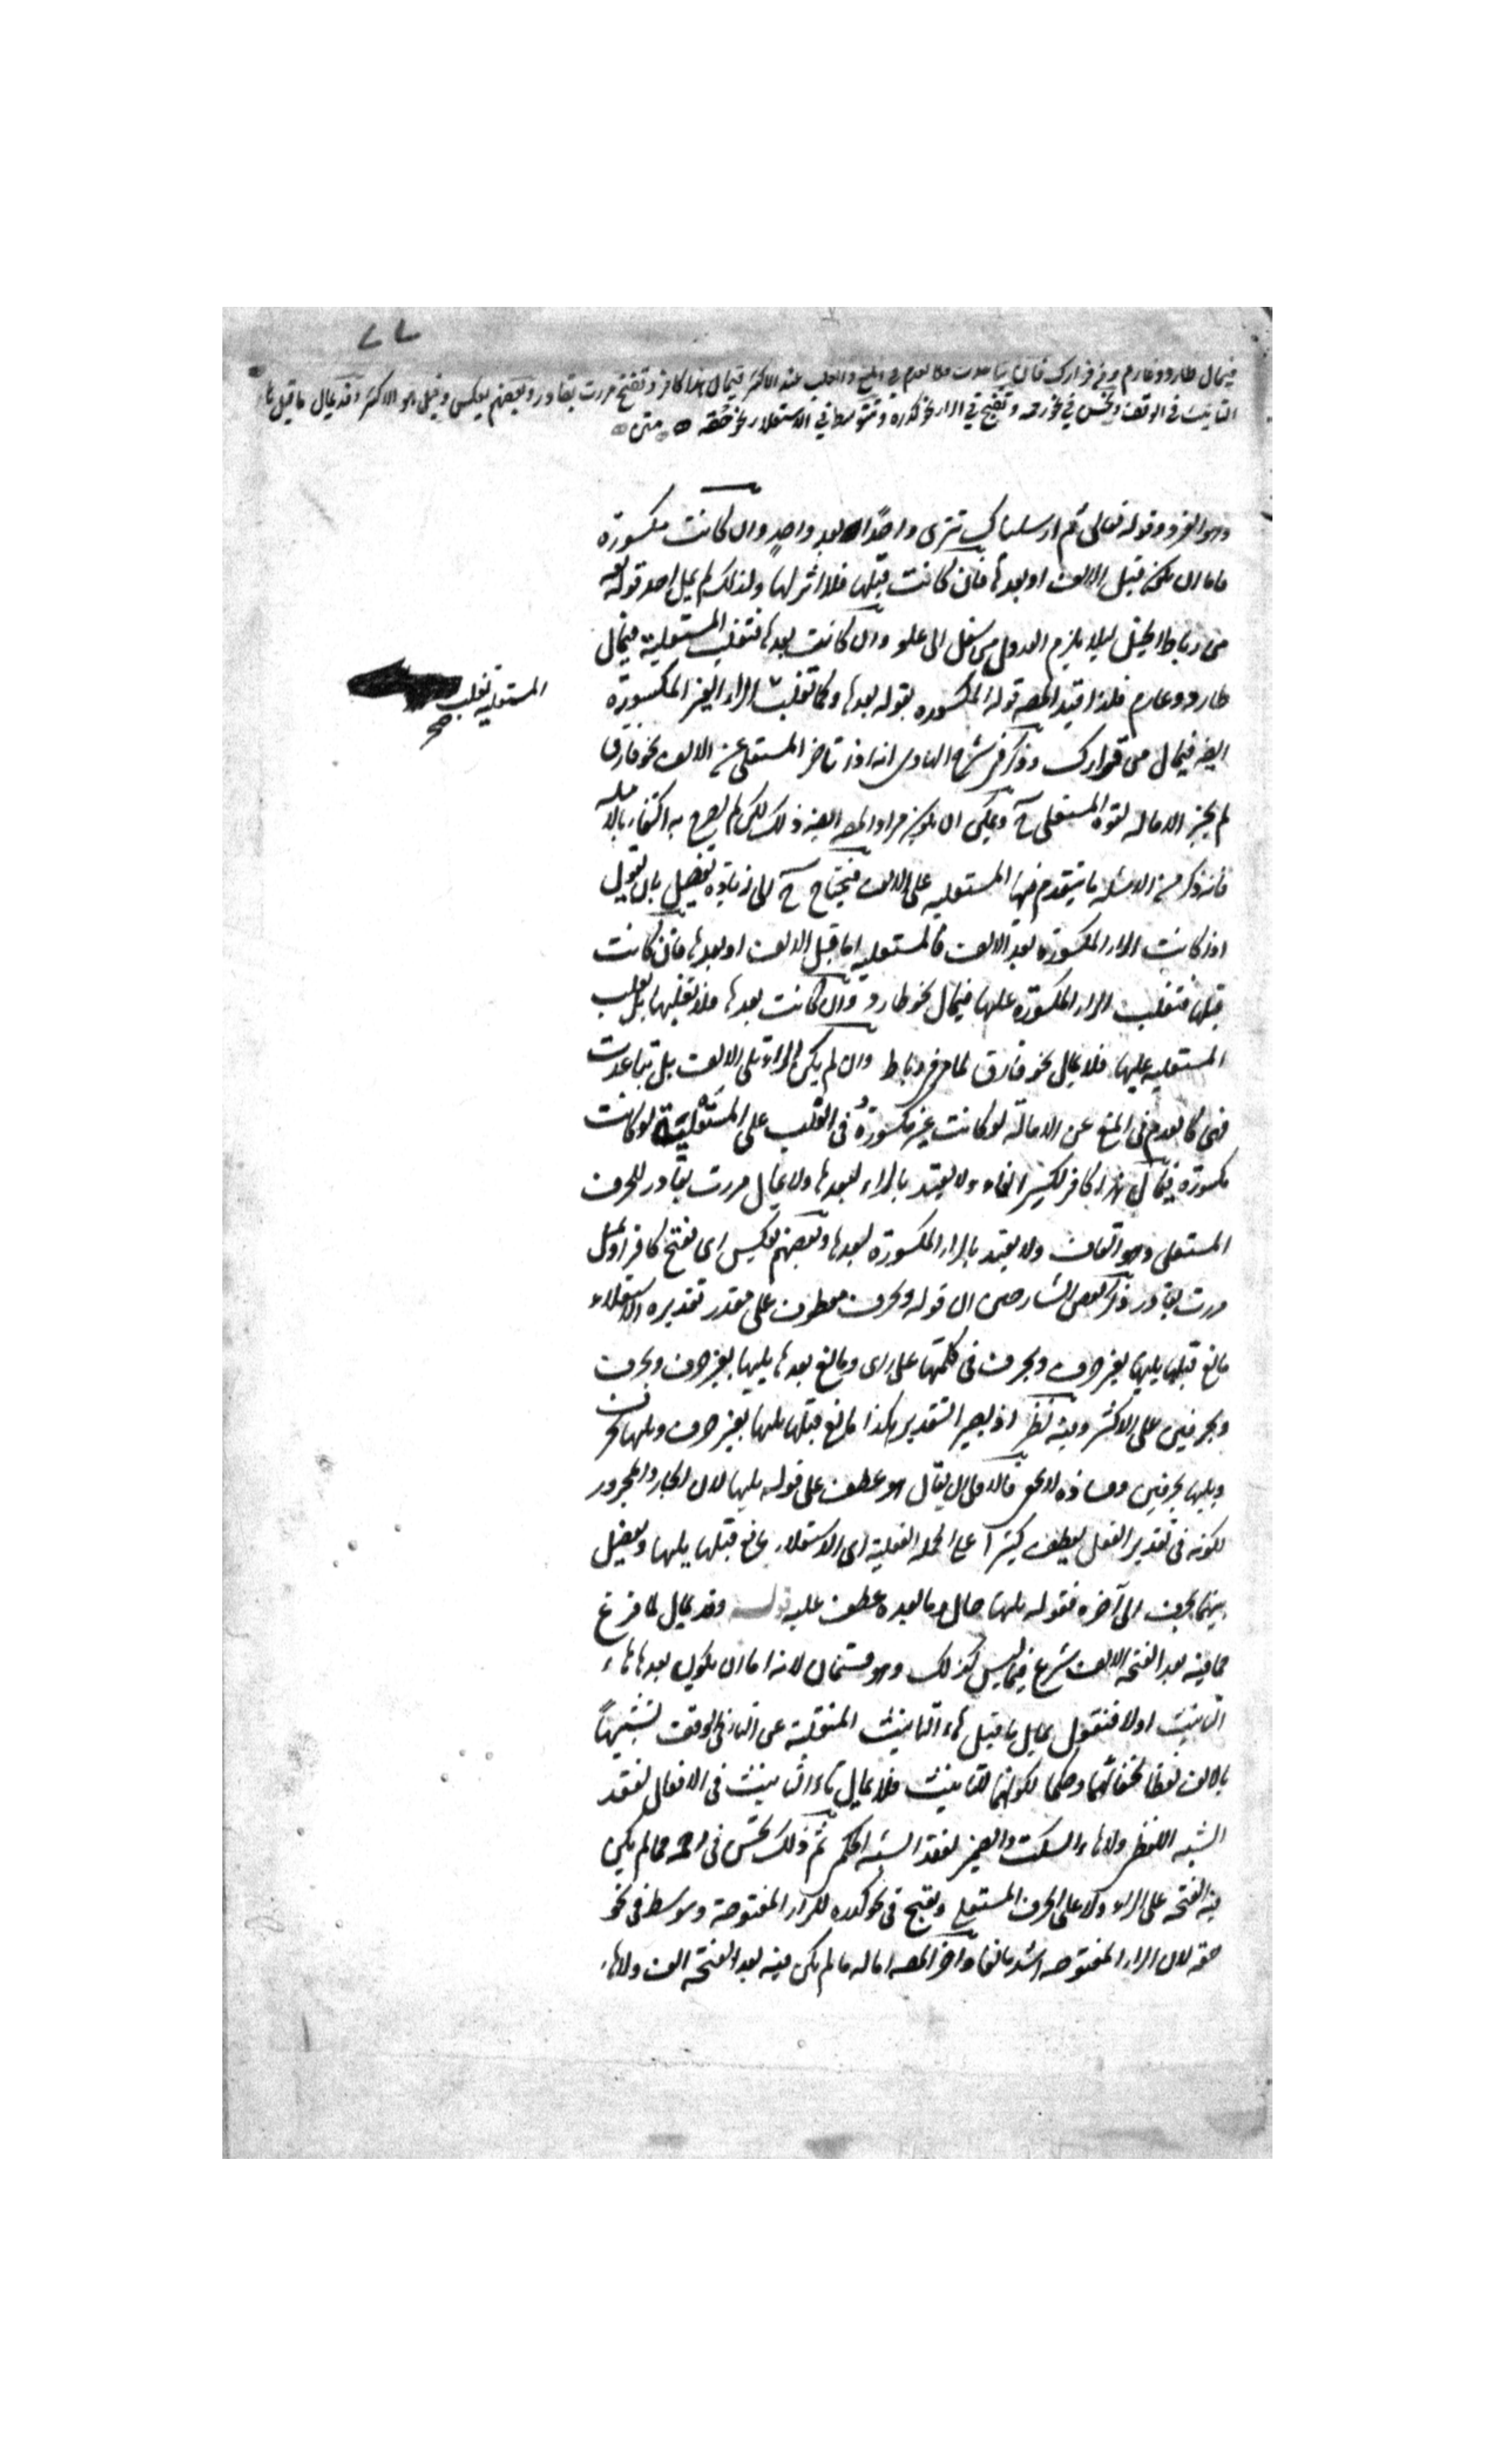 ٧٧
فيمال طارد وغارم ومن قرارك فاذا تباعدت فكالعدم في المنع والغلب عند الاكثر فيمال هذا كافر وتفتح مررت بقادر وبعضهم يعكس وقيل هو الاكثر وقد يمال ما قبل هاء
التانيث في الوقف ويحسن في نحو رحمه وتقبح في الراء نحو كدرة وتتوسط في الاستعلاء نحو حقه متن
وهو الفرد وقوله تعالى ثم ارسلنا رسلنا تترى واحدا بعد واحد وان كانت مكسورة
فاما ان يكون قبل الالف او بعدها فان كانت قبلها فلا اثر لها ولذلك لم يمل احد قوله تعه
من رباط الخيل ليلا يلزم العدول من سفل الى علو وان كانت بعدها فتغلب المستعلية فيمال
طارد وغارم فلذا قيد المصه قوله المكسوره بقوله بعدها وكما تغلب الراء الغير المكسورة
المستعلية تغلب صح
ايضه فيمال من قرارك وذكر في شرح الهادى انه اذا تاخر المستعلى عن الالف نحو فارق
لم يجز الاماله لقوة المستعلى ح ويمكن ان يكون مراد المصه ايضه ذلك لكن لم يصرح به اكتفاء بالامثله
فانه ذكر من الامثله ما يتقدم فيها المستعليه على الالف فيحتاج ح الى زياده تفصيل بان نقول
اذا كانت الراء المكسورة بعد الالف فالمستعليه اما قبل الالف او بعدها فان كانت
قبلها فتغلب الراء المكسورة عليها فيمال نحو طارد وان كانت بعدها فلا تغلبها بل تغلب
المستعليه عليها فلا يمال نحو فارق لما مر في رباط وان لم يكن الراء تلى الالف بل تباعدت
فهى كالعدم في المنع عن الامالة لو كانت غير مكسورة وفى الغلب على المستعلية لو كانت
مكسورة فيمال هذا كافر لكسر الفاء ولا يعتد بالراء لبعدها ولا يمال مررت بقادر للحرف
المستعلى وهو القاف ولا يعتد بالراء المكسورة لبعدها وبعضهم يعكس اى يفتح كافر او يميل
مررت بقادر وذكر بعض الشارحين ان قوله وبحرف معطوف على مقدر تقديره الاستعلاء
مانع قبلها يليها بغير حرف وبحرف فى كلمتها على راى ومانع بعدها يليها بغير حرف وبحرف
وبحرفين على الاكثر وفيه نظر اذ يصير التقدير هكذا مانع قبلها يليها بغير حرف ويليها بحرف
ويليها بحرفين وفساده لا يخفى فالاولى ان يقال هو عطف على قوله يليها لان الجار والمجرور
لكونه فى تقدير الفعل يعطف كثيرا على الجمله الفعلية اى الاستعلاء مانع قبلها يليها ويفصل
بينهما بحرف الى آخره فقوله يليها حال وما بعده عطف عليه قوله وقد يمال لما فرغ
مما فيه بعد الفتحه الالف شرع فيما ليس كذلك وهو قسمان لانه اما ان يكون بعدها هاء
التانيث اولا فنقول يمال ما قبل هاء التانيث المنقلبة عن التاء في الوقف تشبيهاً
بالالف لفظا لخفائهما وحكما لكونهما للتانيث فلا يمال تاء التانيث فى الافعال لفقد
الشبه اللفظى ولا هاء السكت والضمير لفقد الشبه الحكمى ثم ذلك يحسن فى رحمه مما لم يكن
فيه الفتحه على الراء ولا على الحرف المستعلى ويقبح فى نحو كدره للراء المفتوحة ويتوسط فى نحو
حقه لان الراء المفتوحه اشد مانعا واخر المصه اماله ما لم يكن فيه بعد الفتحه الف ولا هاء